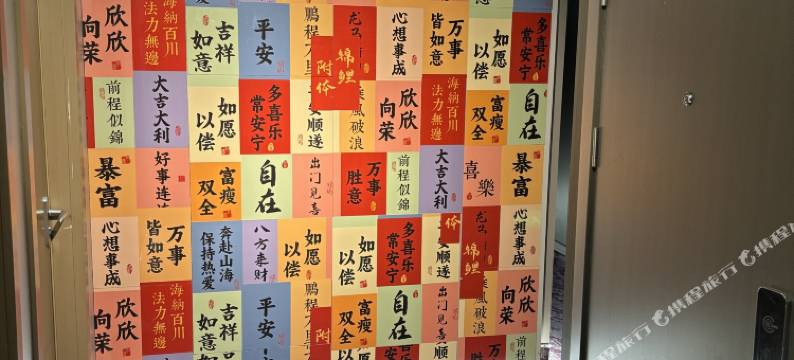 欣欣向荣
海納百川
法力無邊
吉祥如意
平安
鵬程万里
心想事成
万事皆如意
如愿以偿
多喜乐
常安宁
錦鯉附体
前程似錦
大吉大利
如愿以偿
多喜乐
常安宁
乘風破浪
欣欣向荣
海納百川
法力無邊
富瘦双全
自在
暴富
好事连连
富瘦双全
自在
出门见喜
万事胜意
前程似錦
大吉大利
喜樂
暴富
心想事成
万事皆如意
奔赴山海
保持热爱
八方来财
如愿以偿
如愿以偿
多喜乐
常安宁
安顺遂
錦鯉
心想事成
欣欣向荣
海納百川
法力無邊
吉祥如意
平安
鵬程
富瘦双全
自在
出门见喜
乘風破浪
欣欣向荣
附
如意
如愿以偿
富瘦双全
万事
前程似
携程旅行
携程旅行